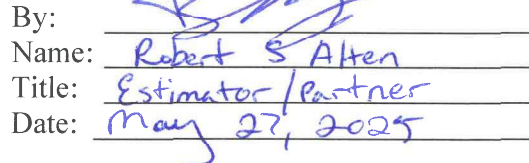 By:
Name: Robert S Alten
Title: Estimator/Partner
Date: May 27, 2025